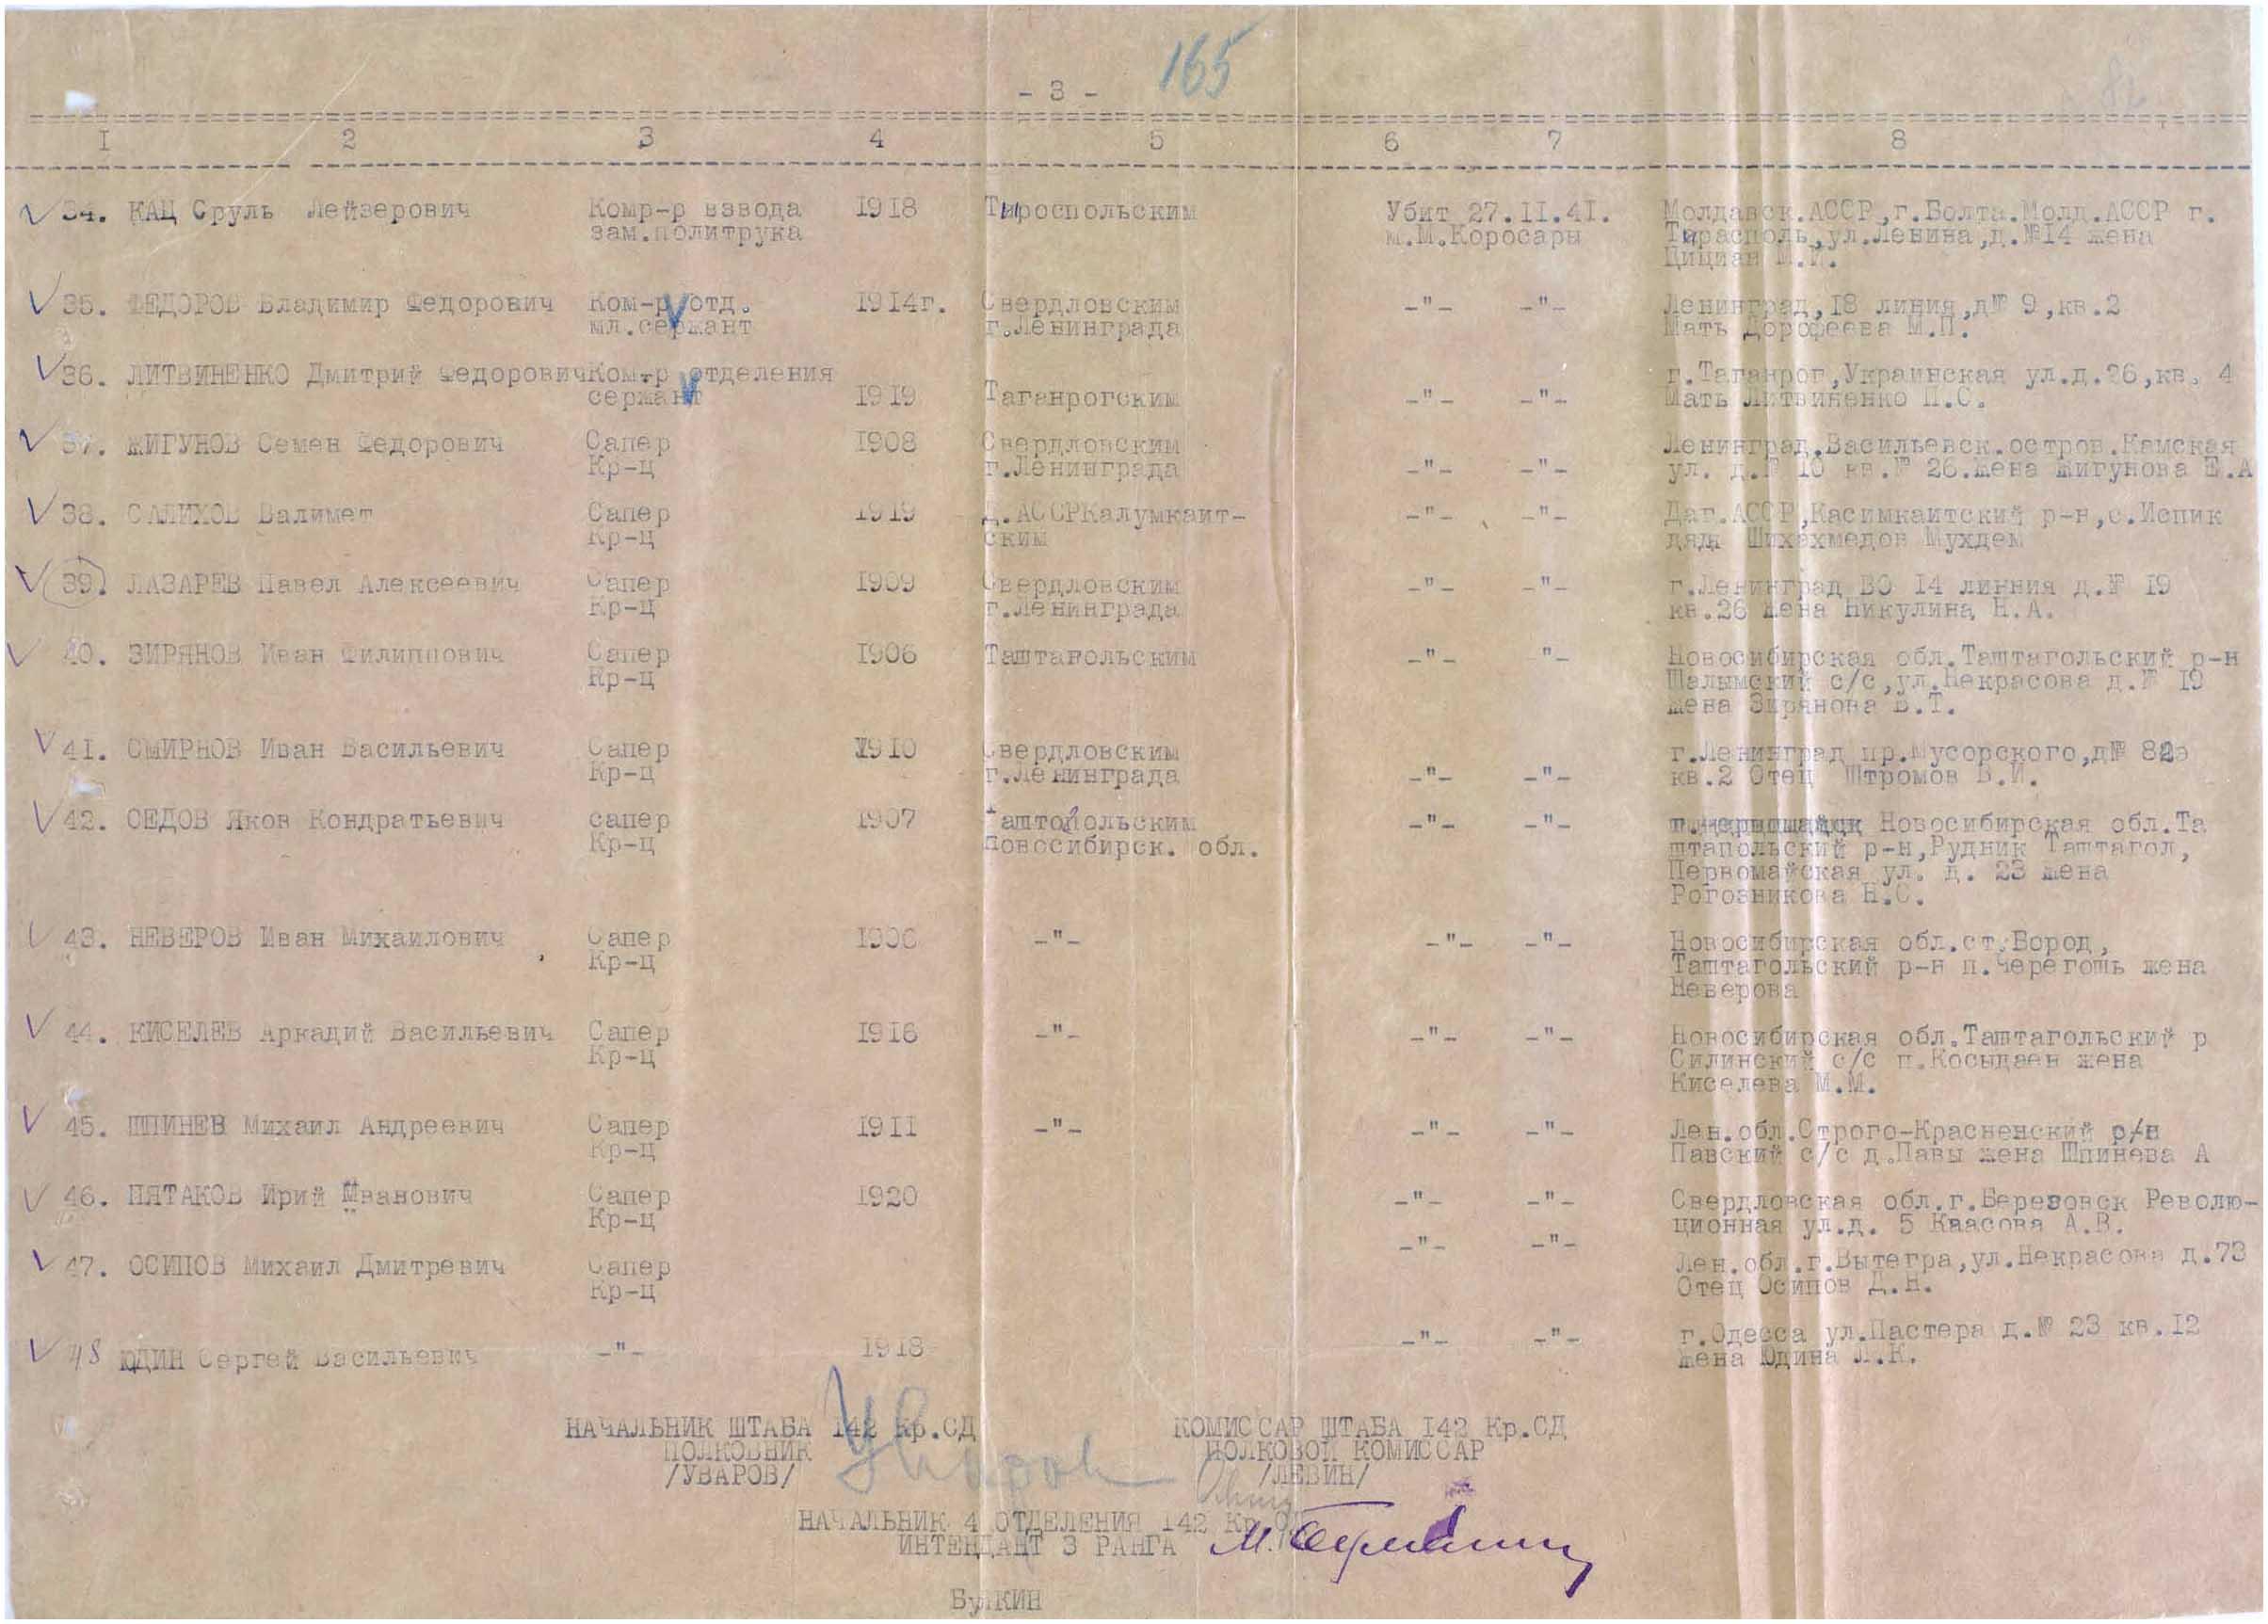 165
- 3 -
I 2 3 4 5 6 7 8
34. КАЦ Сруль Лейзерович Комр-р взвода 1918 Тироспольским Убит 27.II.41. Молдавск.АССР,г.Болта.Молд.АССР г.
зам.политрука м.М.Коросары Тирасполь,ул.Ленина,д.№14 жена
Цициан М.И.
35. ФЕДОРОВ Владимир Федорович Ком-р отд. 1914г. Свердловским -"- -"- Ленинград,18 линия,д№ 9,кв.2
мл.сержант г.Ленинграда Мать Дорофеева М.П.
36. ЛИТВИНЕНКО Дмитрий Федорович Ком-р отделения г.Таганрог,Украинская ул.д.26,кв. 4
сержант 1919 Таганрогским -"- -"- Мать Литвиненко П.С.
37. ЖИГУНОВ Семен Федорович Сапер 1908 Свердловским Ленинград,Васильевск.остров.Камская
Кр-ц г.Ленинграда -"- -"- ул. д.№ 10 кв.№ 26.жена Жигунова Е.А
38. САЛИХОВ Валимет Сапер 1919 Д.АССРКалумкаит- -"- -"- Даг.АССР,Касимкаитский р-н,с.Испик
Кр-ц ским дядя Шихахмедов Мухдем
39. ЛАЗАРЕВ Павел Алексеевич Сапер 1909 Свердловским -"- -"- г.Ленинград ВО 14 линния д.№ 19
Кр-ц г.Ленинграда кв.26 жена Никулина Н.А.
40. ЗИРЯНОВ Иван Филиппович Сапер 1906 Таштагольским -"- "- Новосибирская обл.Таштагольский р-н
Кр-ц Шалымский с/с,ул.Некрасова д.№ 19
жена Зирянова В.Т.
41. СМИРНОВ Иван Васильевич Сапер 1910 Свердловским г.Ленинград пр.Мусорского,д№
Кр-ц г.Ленинграда -"- -"- кв.2 Отец Штромов В.И.
42. СЕДОВ Яков Кондратьевич сапер 1907 -"- -"- Новосибирская обл.Та
Кр-ц Новосибирск. обл. штапольский р-н,Рудник Таштагол,
Первомайская ул. д. 23 жена
Рогозникова Н.С.
43. НЕВЕРОВ Иван Михаилович Сапер 1906 -"- -"- -"- Новосибирская обл.ст.Бород,
Кр-ц Таштагольский р-н п.Черегошь жена
Неверова
44. КИСЕЛЕВ Аркадий Васильевич Сапер 1916 -"- -"- -"- Новосибирская обл.Таштагольский р
Кр-ц Силинский с/с п.Косыдаен жена
Киселева М.М.
45. ШПИНЕВ Михаил Андреевич Сапер 1911 -"- -"- -"- Лен.обл.Строго-Красненский р/н
Кр-ц Павский с/с д.Павы жена Шпинева А
46. ПЯТАКОВ Ирий Иванович Сапер 1920 -"- -"- Свердловская обл.г.Березовск Револю-
Кр-ц ционная ул.д. 5 Кваcова А.В.
-"- -"-
47. ОСИПОВ Михаил Дмитревич Сапер Лен.обл.г.Вытегра,ул.Некрасова д.73
Кр-ц Отец Осипов Д.Н.
48 ЮДИН Сергей Васильевич -"- 1918 -"- -"- г.Одесса ул.Пастера д.№ 23 кв.12
жена Юдина Л.К.
НАЧАЛЬНИК ШТАБА 142 Кр.СД КОМИССАР ШТАБА 142 Кр.СД
ПОЛКОВНИК ПОЛКОВОЙ КОМИССАР
/УВАРОВ/ Уваров /ЛЕВИН/
НАЧАЛЬНИК 4 ОТДЕЛЕНИЯ 142 Кр.СД
ИНТЕНДАНТ 3 РАНГА
Булкин